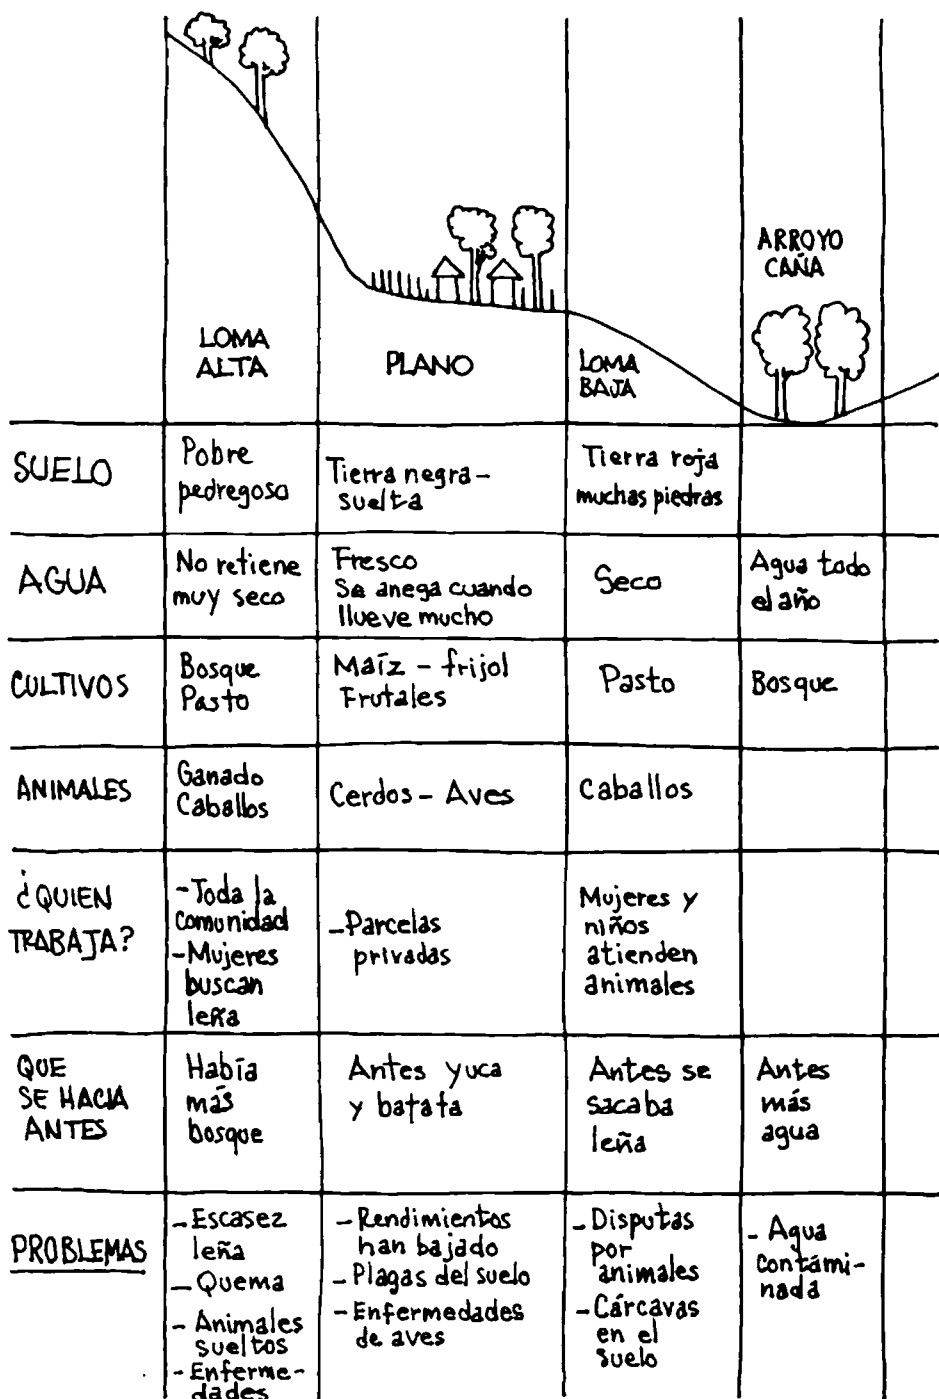 ARROYO
CAÑA
LOMA
ALTA
PLANO
LOMA
BAJA
SUELO
Pobre
pedregoso
Tierra negra-
suelta
Tierra roja
muchas piedras
AGUA
No retiene
muy seco
Fresco
Se anega cuando
llueve mucho
Seco
Agua todo
el año
CULTIVOS
Bosque
Pasto
Maíz - frijol
Frutales
Pasto
Bosque
ANIMALES
Ganado
Caballos
Cerdos - Aves
Caballos
¿QUIEN
TRABAJA?
- Toda la
comunidad
- Mujeres
buscan
leña
- Parcelas
privadas
Mujeres y
niños
atienden
animales
QUE
SE HACIA
ANTES
Había
más
bosque
Antes yuca
y batata
Antes se
sacaba
leña
Antes
más
agua
PROBLEMAS
- Escasez
leña
- Quema
- Animales
sueltos
- Enferme-
dades
- Rendimientos
han bajado
- Plagas del suelo
- Enfermedades
de aves
- Disputas
por
animales
- Cárcavas
en el
suelo
- Agua
contami-
nada